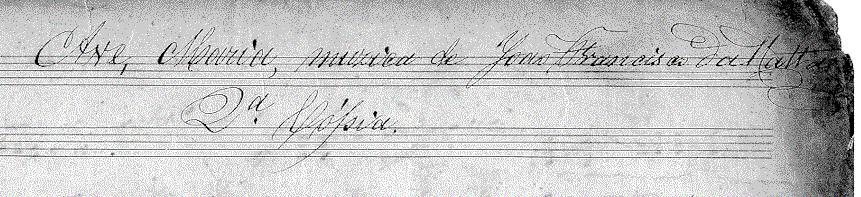 Ave, Maria, muzica de Joao Francisco da Matta
Da. Cópia.